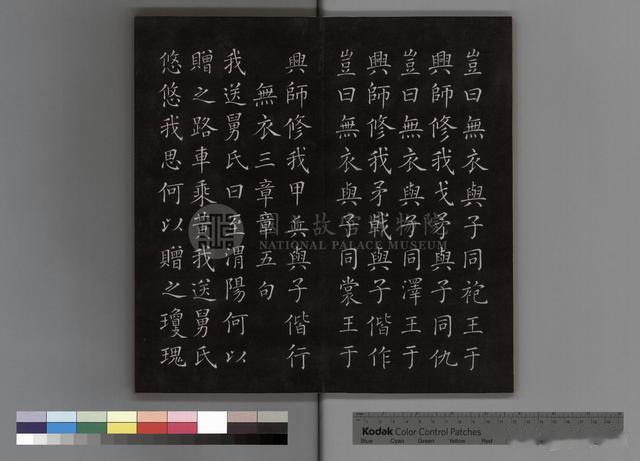 豈曰無衣與子同袍王于
興師修我戈矛與子同仇
豈曰無衣與子同澤王于
興師修我矛戟與子偕作
豈曰無衣與子同裳王于
興師修我甲兵與子偕行
無衣三章章五句
我送舅氏曰至渭陽何以
贈之路車乘黃我送舅氏
悠悠我思何以贈之瓊瑰
國立故宮博物院
NATIONAL PALACE MUSEUM
Kodak Color Control Patches
Blue Cyan Green Yellow Red